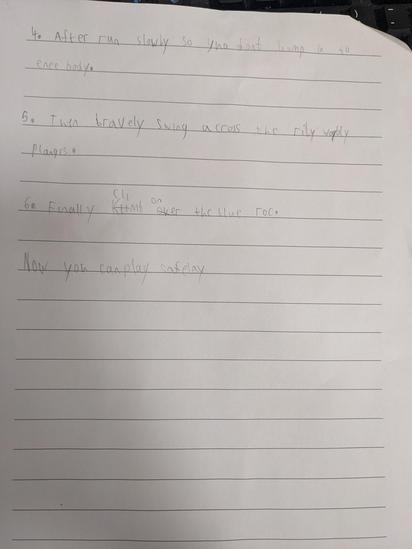 4. After run slowly so you dont bump in to
enee body.
5. Then bravely swing across the rily wobbly
planges.
6. Finally on the blue roc.
Now you can play safelay